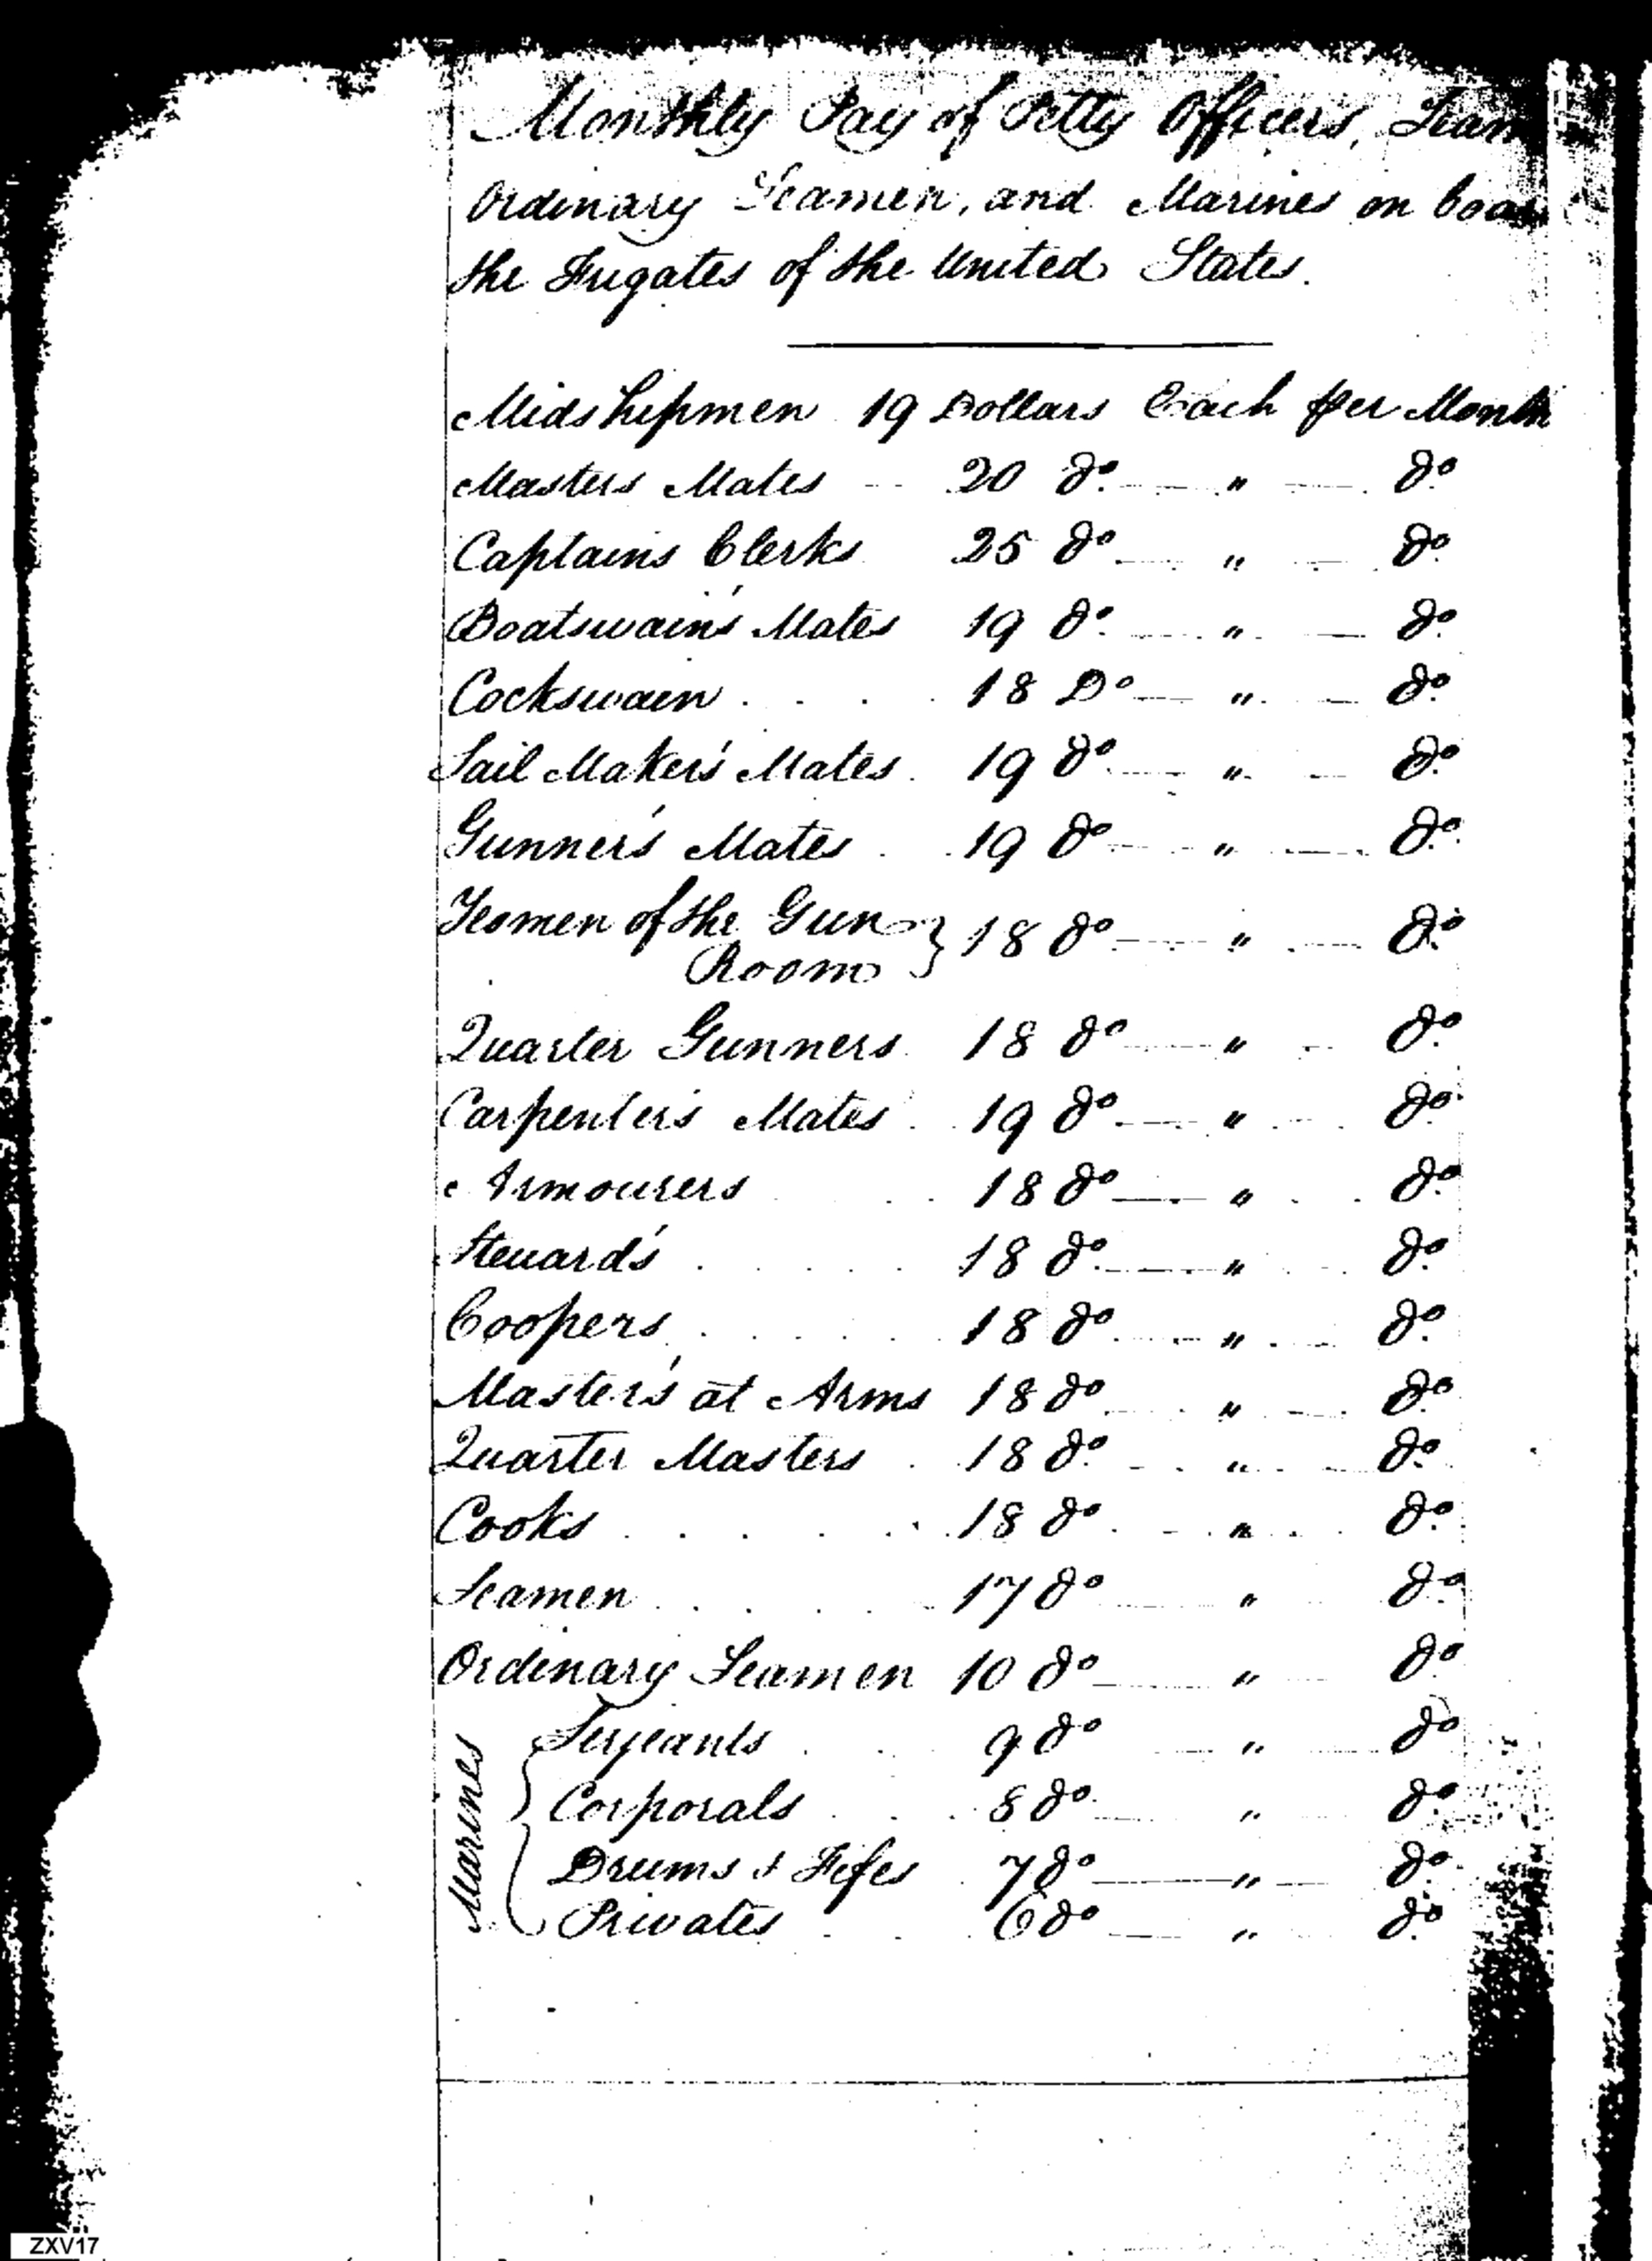 Monthly Pay of Petty Officers, Seam
Ordinary Seamen, and Marines on boar
the Frigates of the United States.
Midshipmen 19 Dollars Each per Month
Masters Mates -- 20 do. — " — do.
Captains Clerks 25 do — " — do.
Boatswain's Mates 19 do. — " — do.
Cockswain . . . 18 Do — " — do.
Sail Maker's Mates . 19 do — " — do.
Gunner's Mates . . 19 do — " — do.
Yeomen of the Gun } 18 do — " — do.
Room
Quarter Gunners 18 do — " — do.
Carpenter's Mates . . 19 do — " — do.
Armourers . . 18 do — " . . do.
Steuard's . . . . . 18 do. — " — do.
Coopers . . . . . . 18 do — " — do.
Master's at Arms 18 do — " — do.
Quarter Masters . . 18 do. - . " - do.
Cooks . . . . . . 18 do . - " . . do.
Seamen . . . . . 17 do — " — do
Ordinary Seamen 10 do — " — do.
Marines
Serjeants . . . 9 do — " — do
Corporals . . . 8 do — " — do.
Drums & Fifes . 7 do — " — do.
Privates . . . 6 do — " — do.
ZXV17